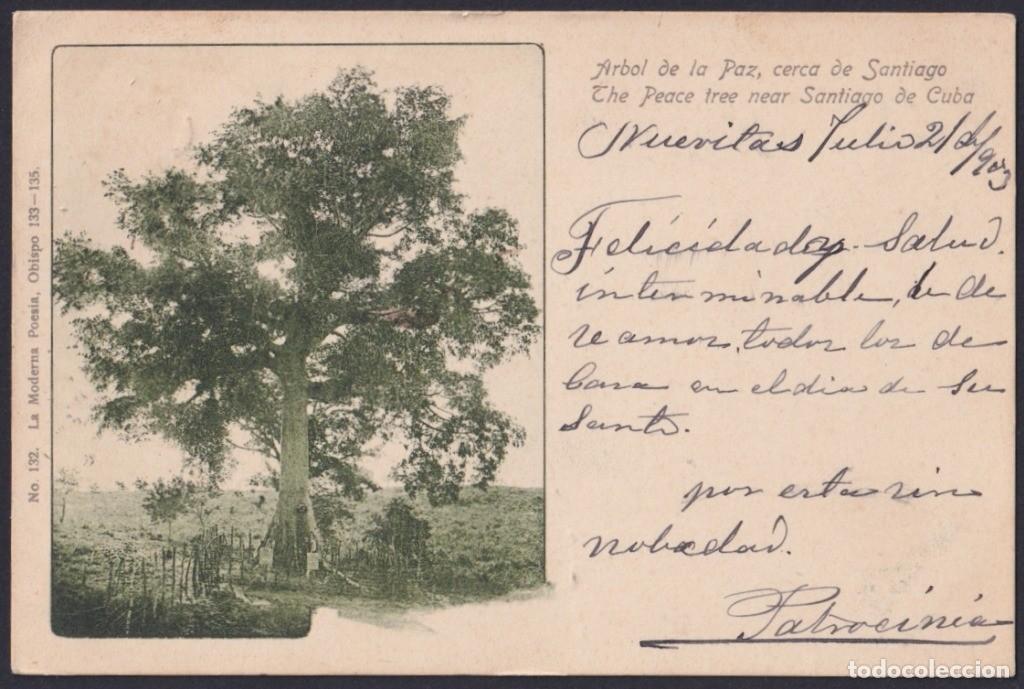 Arbol de la Paz, cerca de Santiago
The Peace tree near Santiago de Cuba
Nuevitas Julio 21 de 1903
Felicidades y Salud
interminable, le de
seamos, todos los de
Casa en el dia de Su
Santo.
por esta sin
nobedad.
Patrocinia
No. 132. La Moderna Poesia, Obispo 133-135.
todocoleccion